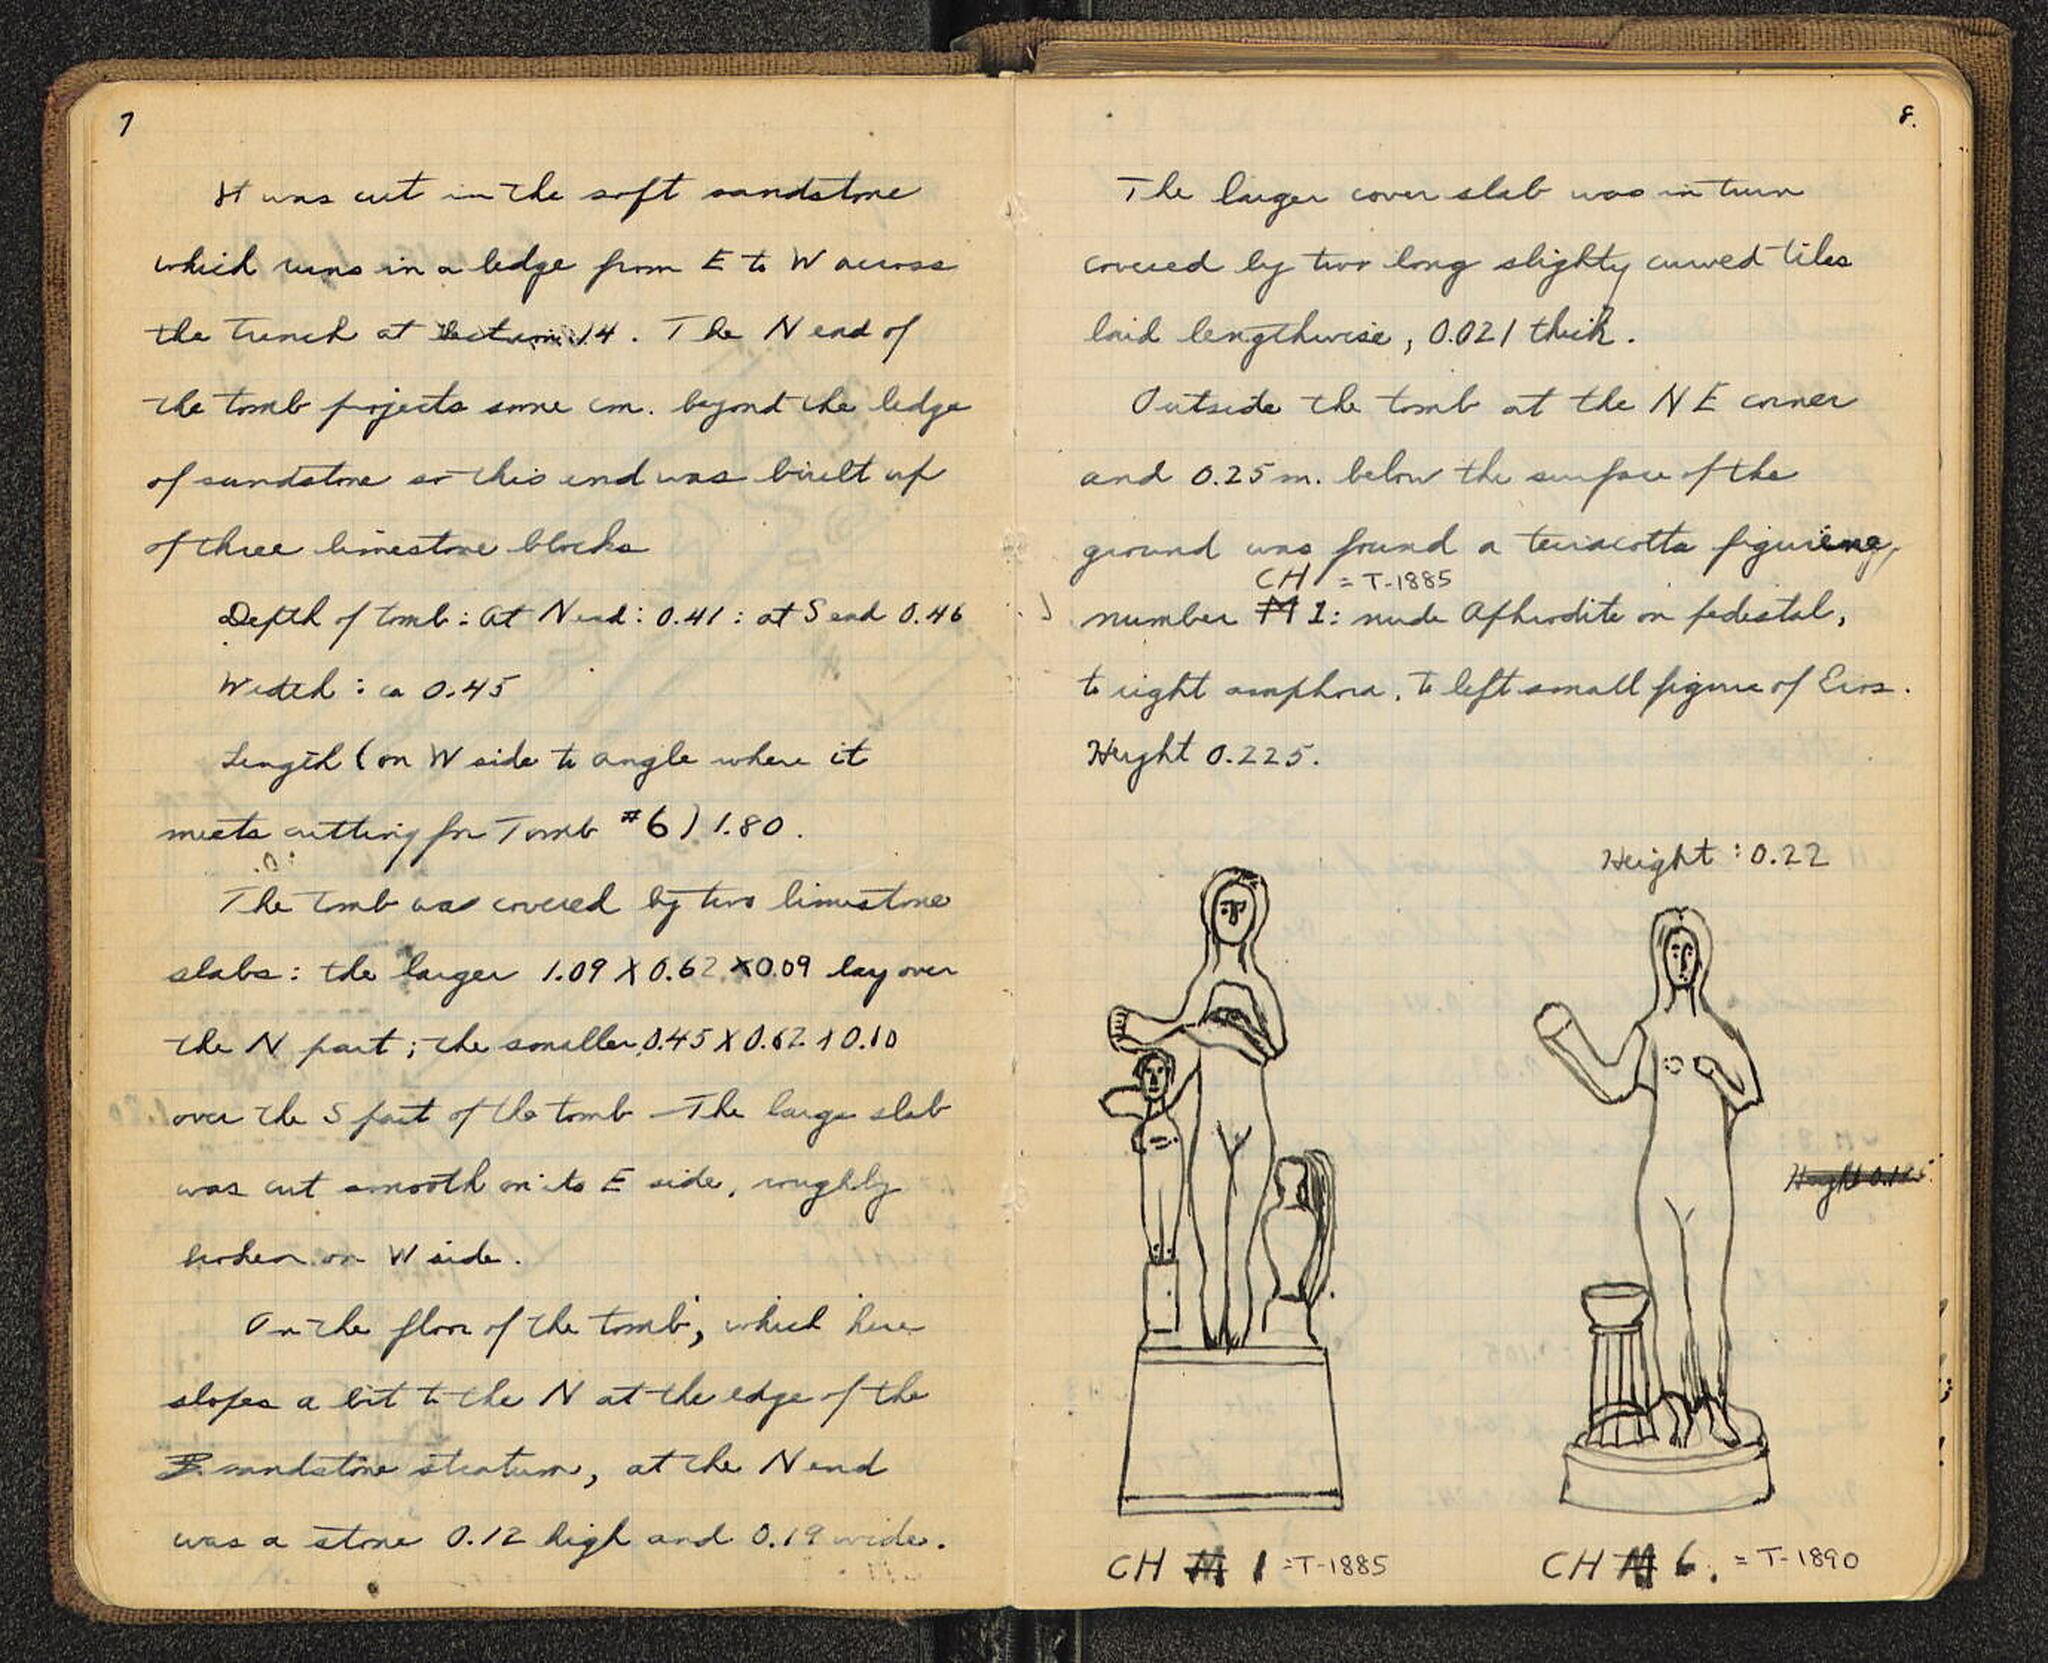 7
It was cut in the soft sandstone
which runs in a ledge from E to W across
the trench at section 14. The N end of
the tomb projects some cm. beyond the ledge
of sandstone so this end was built up
of three limestone blocks
Depth of tomb: at N end: 0.41: at S end 0.46
Width: ca 0.45
Length (on W side to angle where it
meets cutting for Tomb #6) 1.80.
The tomb was covered by two limestone
slabs: the larger 1.09 X 0.62 X 0.09 lay over
the N part; the smaller 0.45 X 0.62 X 0.10
over the S part of the tomb - The large slab
was cut smooth on its E side, roughly
broken on W side.
On the floor of the tomb, which here
slopes a bit to the N at the edge of the
sandstone stratum, at the N end
was a stone 0.12 high and 0.19 wide.
8.
The larger cover slab was in turn
covered by two long slighty curved tiles
laid lengthwise, 0.021 thick.
Outside the tomb at the NE corner
and 0.25 m. below the surface of the
ground was found a terracotta figurine,
CH = T-1885
number M 1: nude Aphrodite on pedestal,
to right amphora, to left small figure of Eros.
Height 0.225.
Height: 0.22
Height 0.185
CH M 1 = T-1885
CH M 6. = T-1890